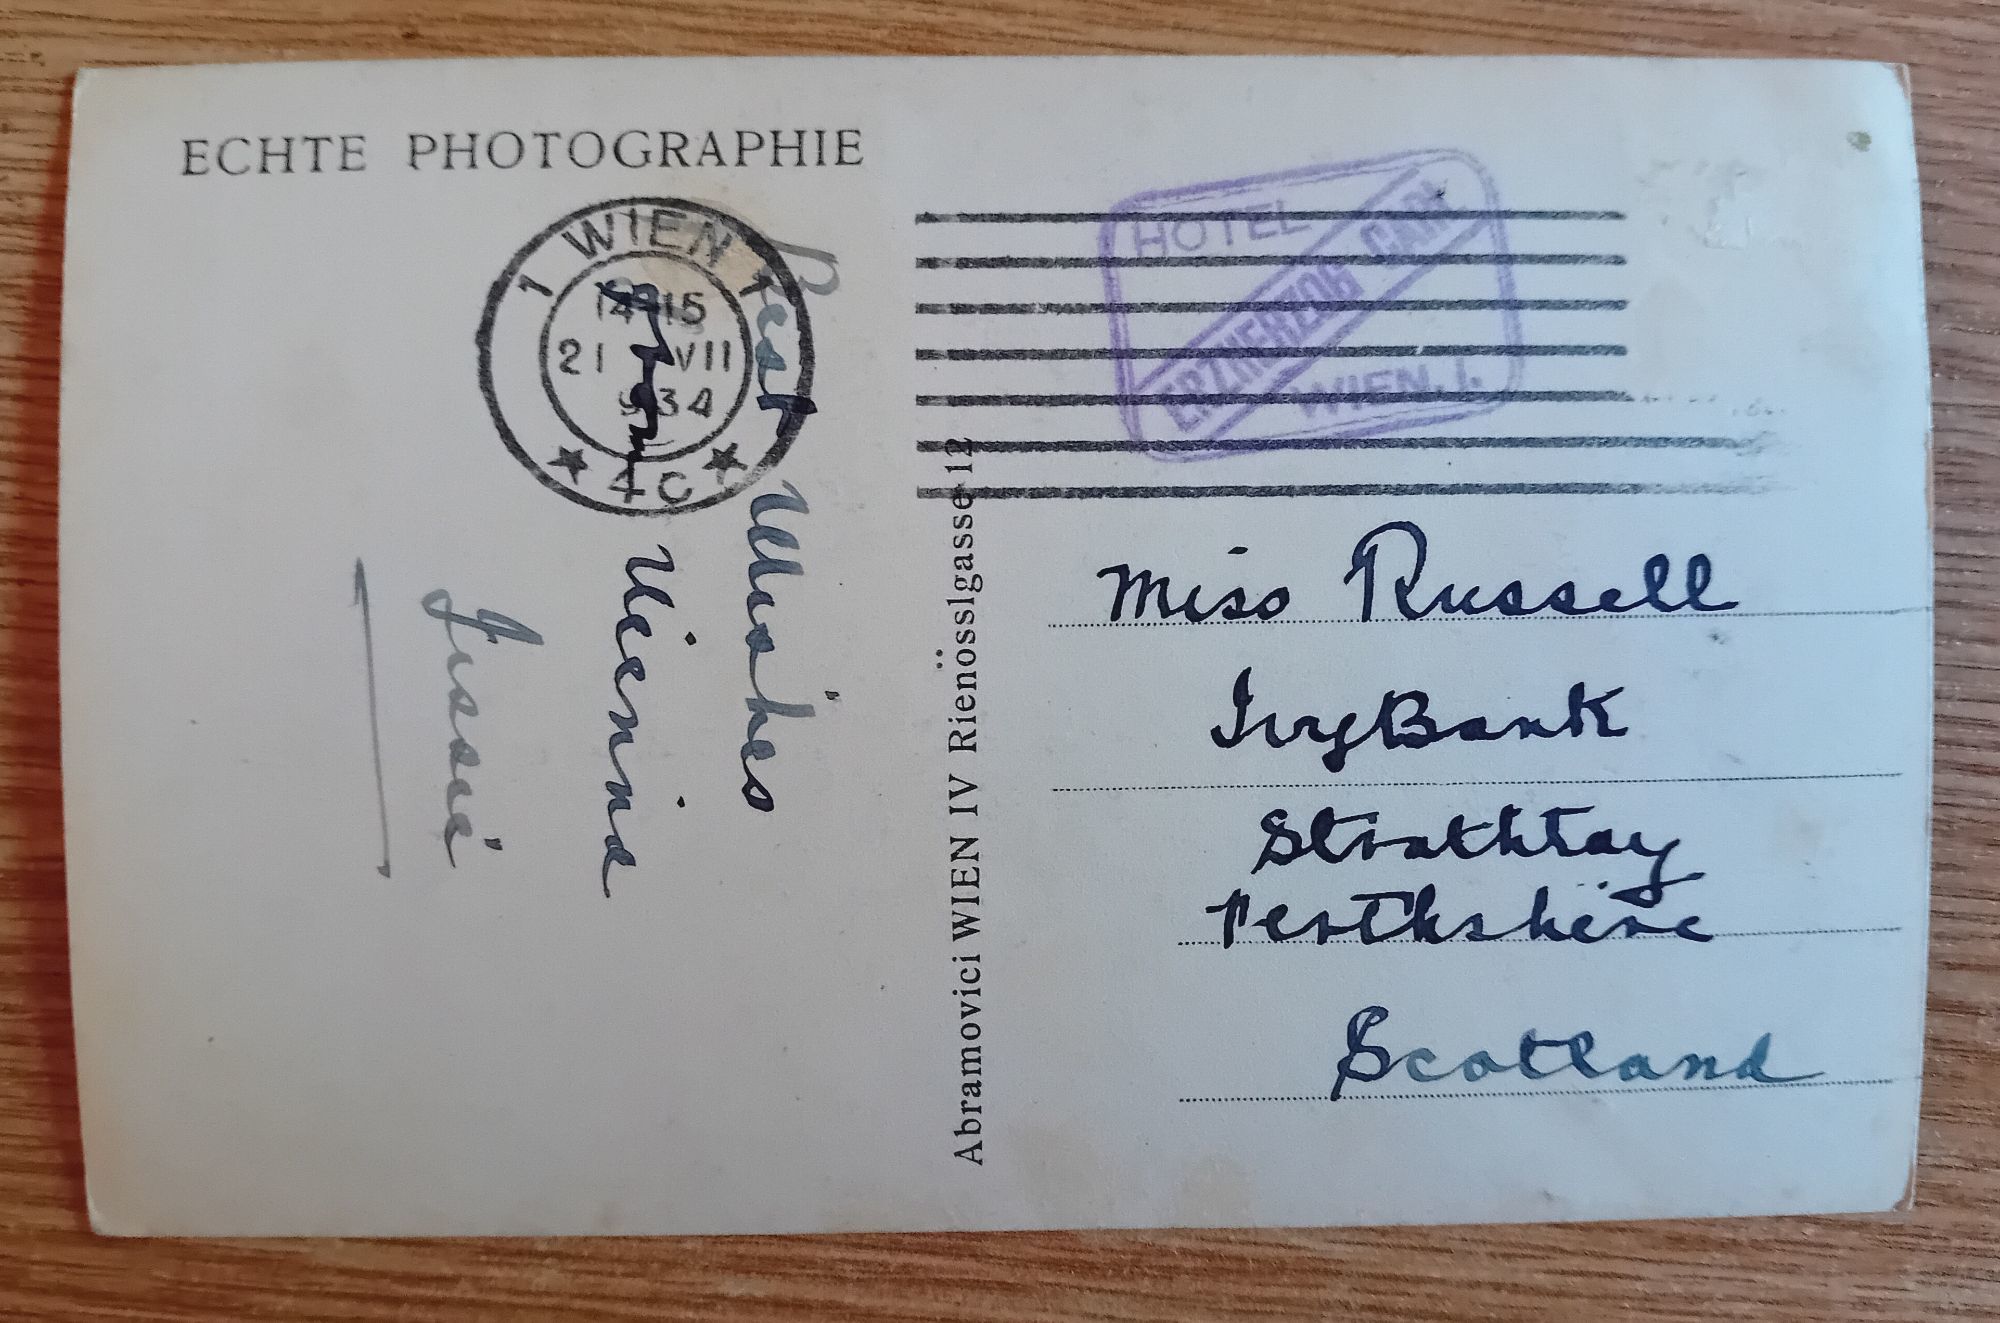 ECHTE PHOTOGRAPHIE
1 WIEN 1
14-15
21 VII
934
★ 4C ★
Best Wishes
from Vienna
Jessie
Abramovici WIEN IV Rienösslgasse 12
HOTEL
ERZHERZOG CARL
WIEN. I.
Miss Russell
Ivy Bank
Strathtay
Perthshire
Scotland